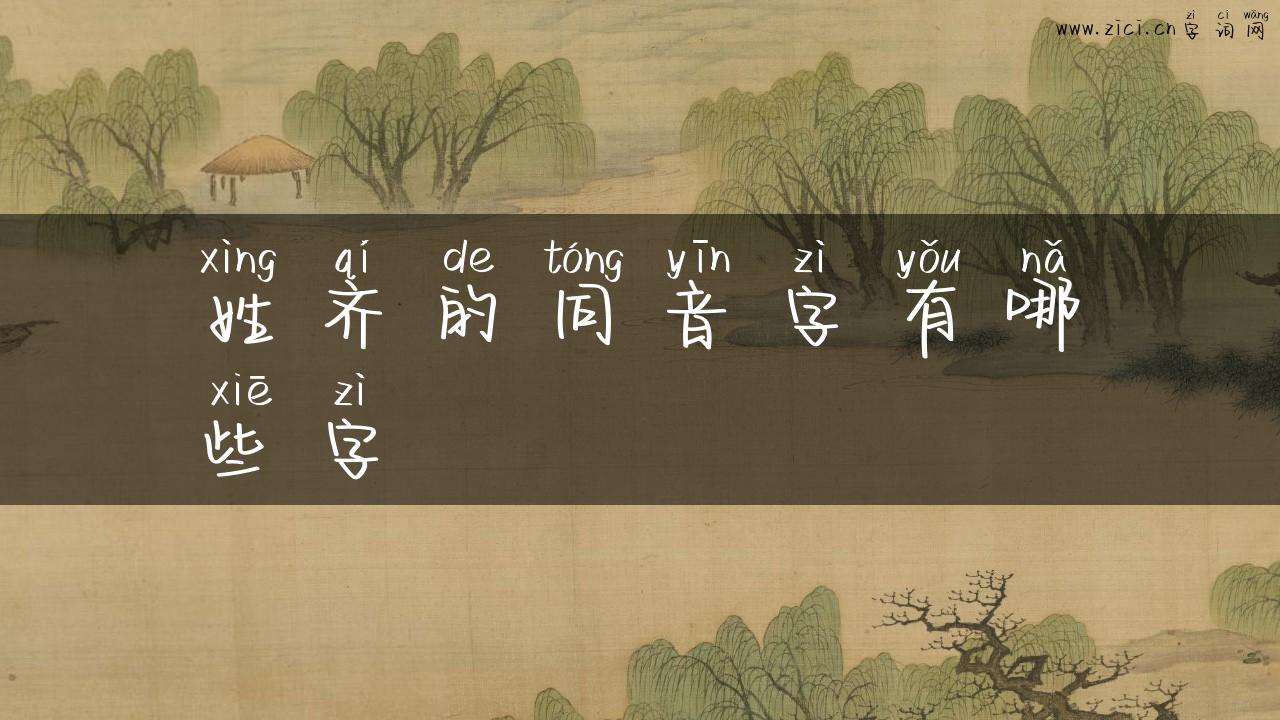 zì cí wǎng
www.zici.cn 字 词 网
xìng qí de tóng yīn zì yǒu nǎ
姓 齐 的 同 音 字 有 哪
xiē zì
些 字